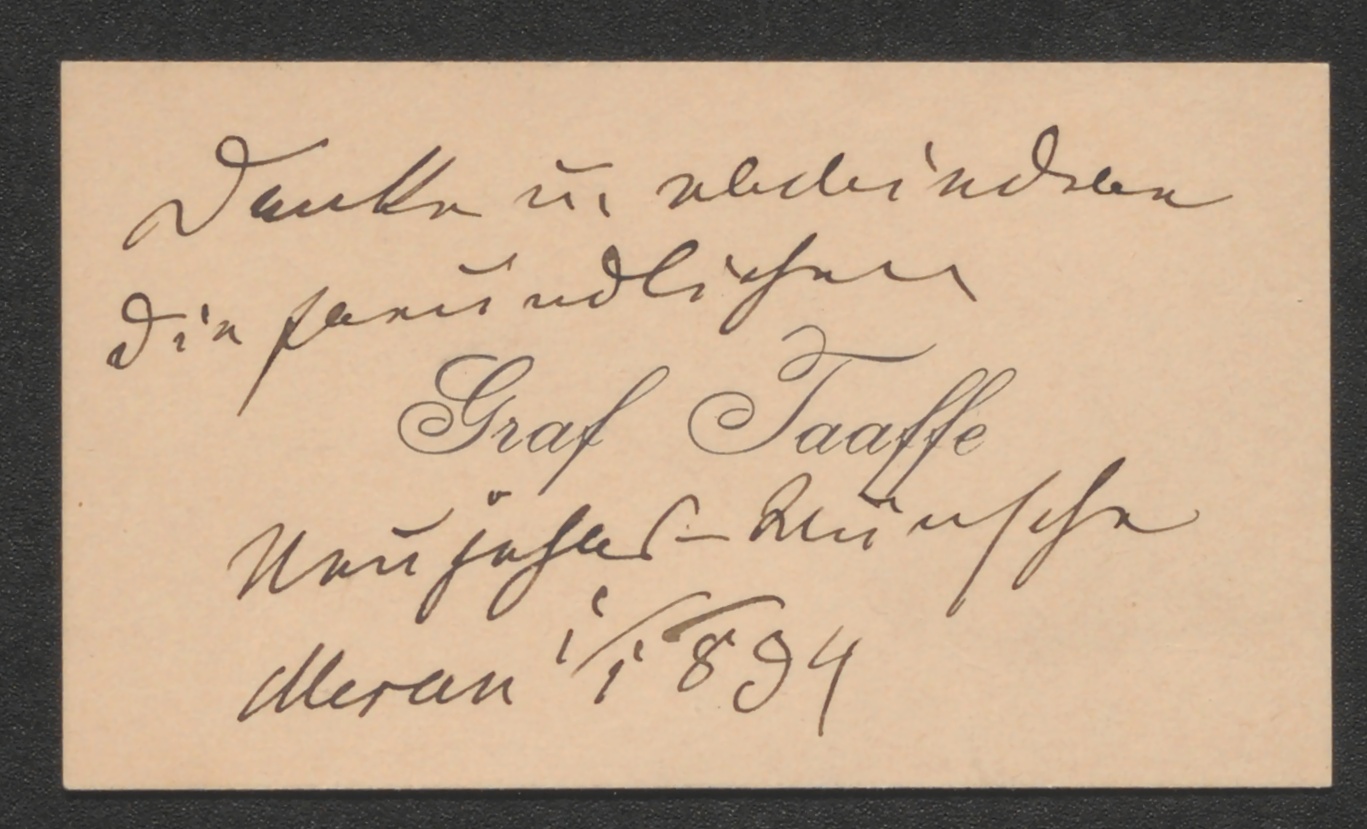 Danke u. erwiedere
die freundlichen
Graf Taaffe
Neujahrs-Wünsche
Meran 1/1 894